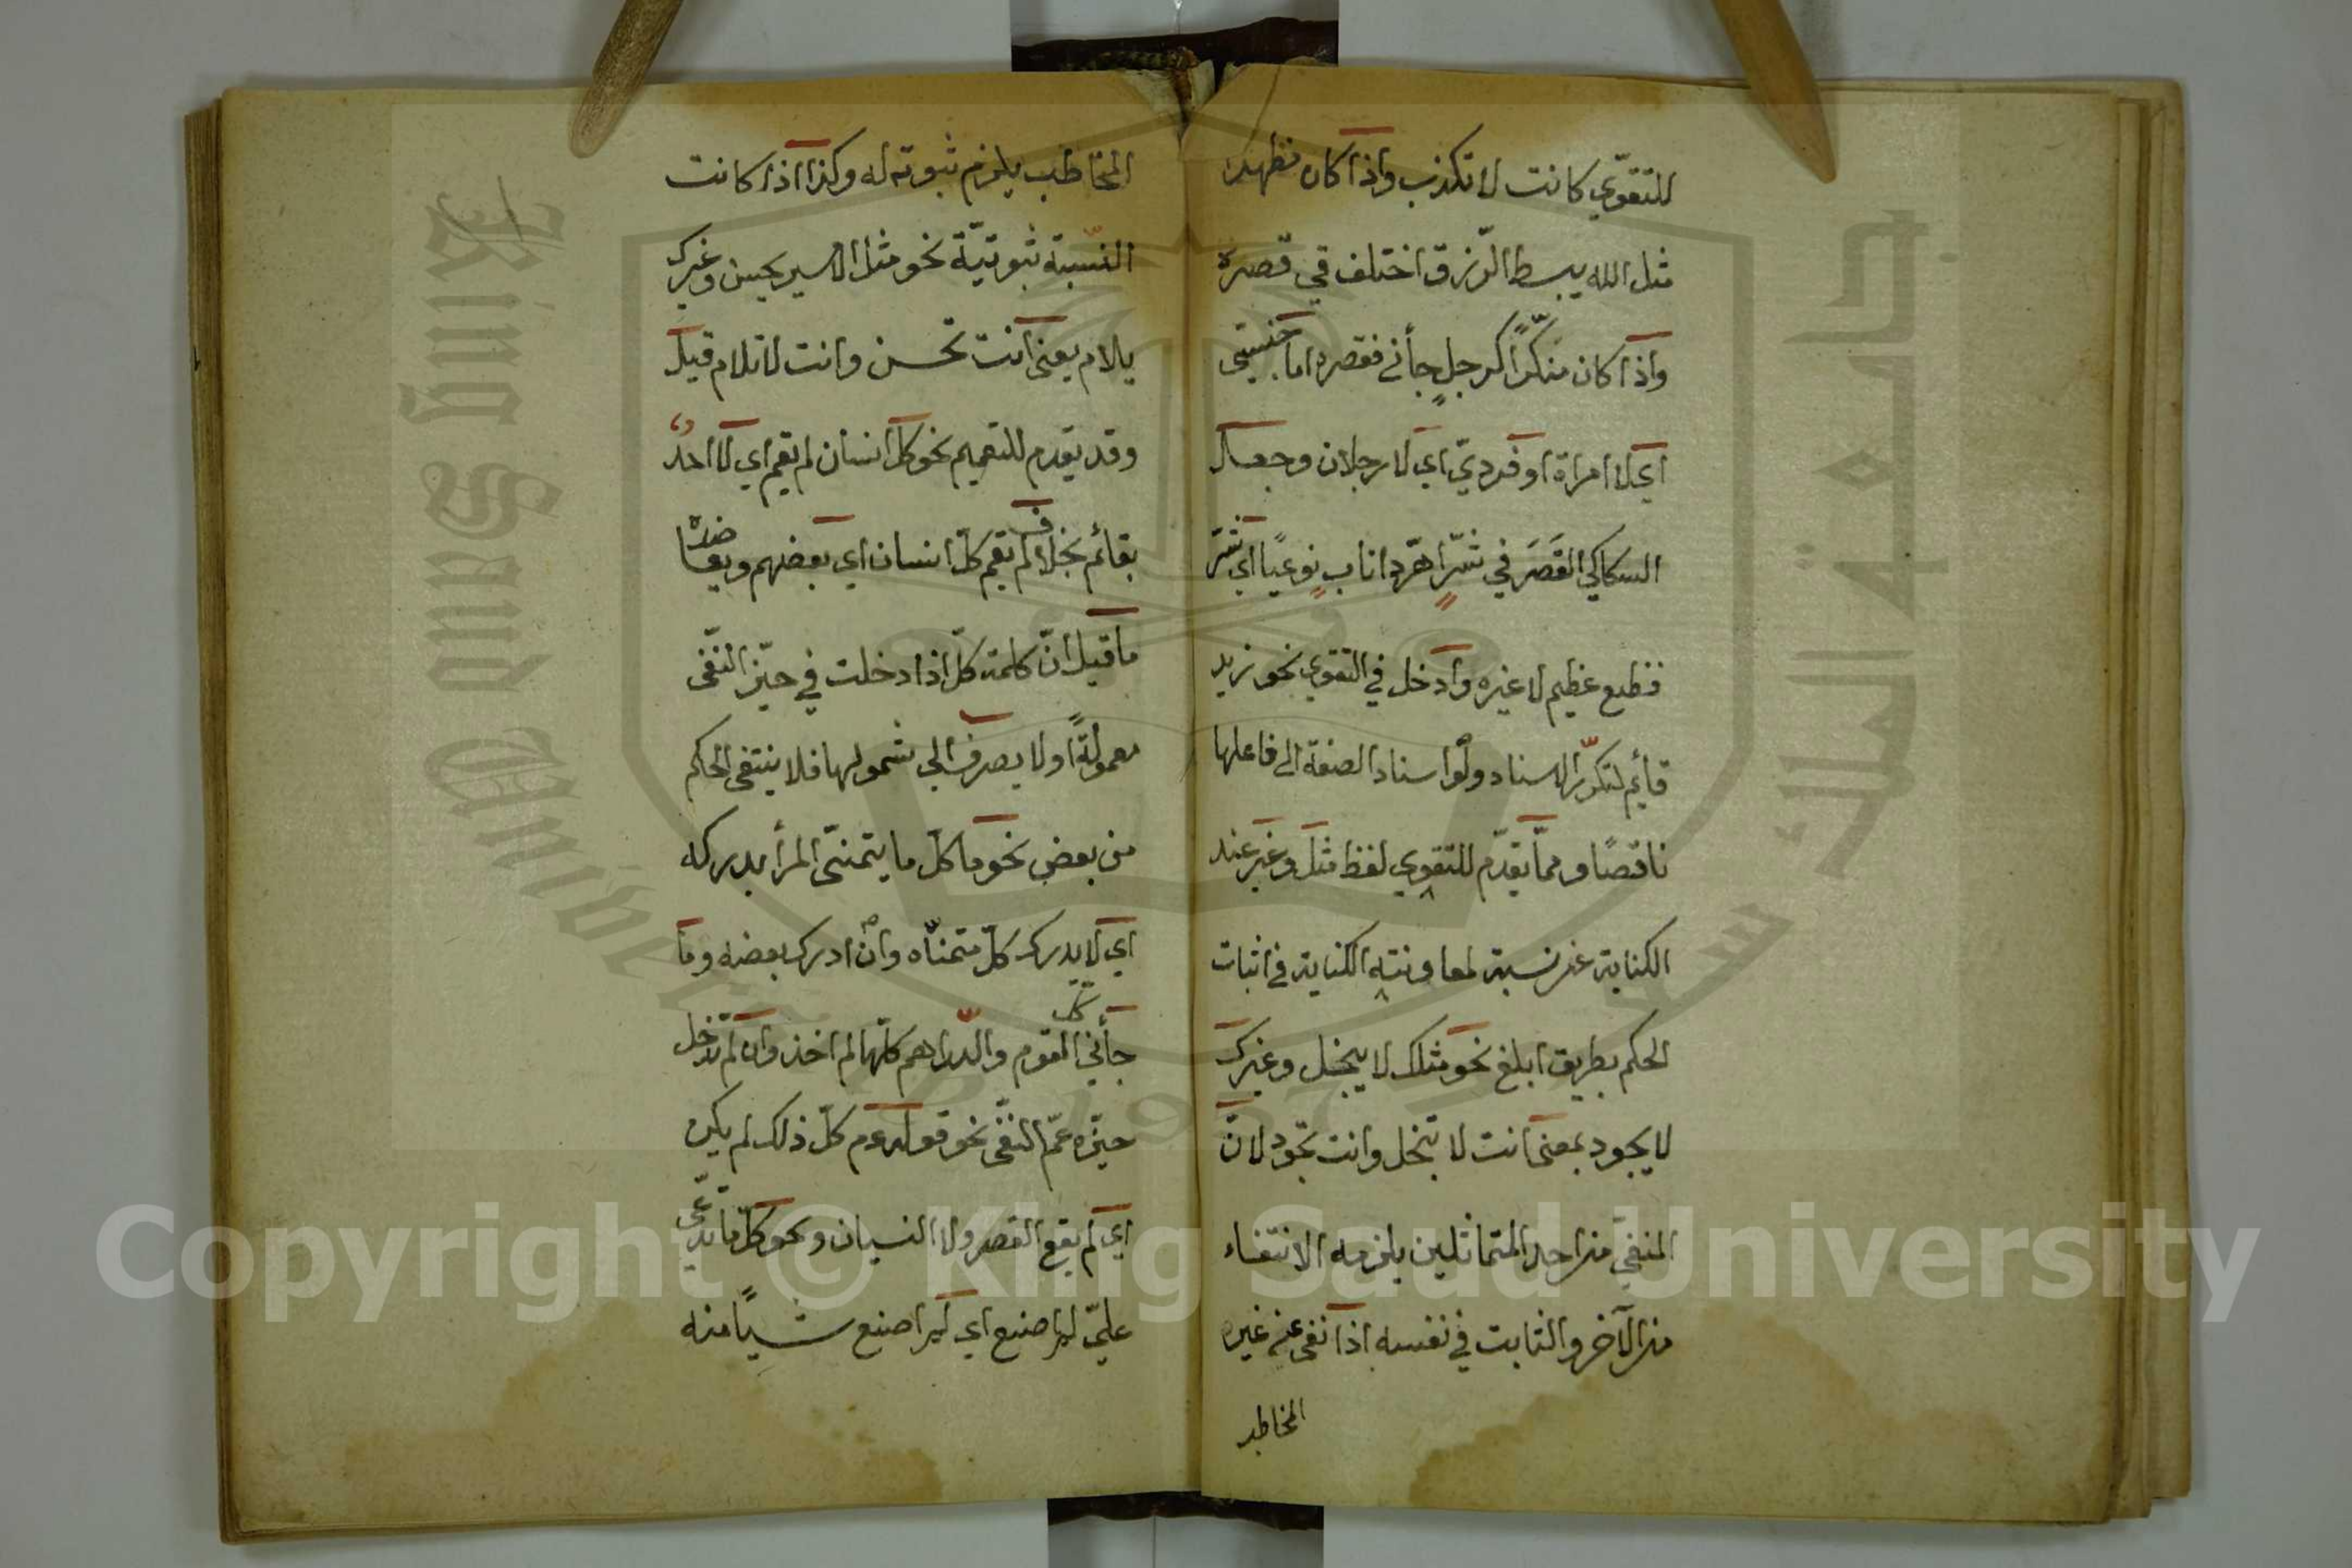 للتقوّي كانت لا تكذب واذا كان مظهرا
مثل الله يبسط الرّزق اختلف في قصره
واذا كان منكّرًا كرجلٍ جأني فقصره اما جنسيّ
اي لا امراة او فرديّ اي لا رجلان وجعل
السكاكي القَصَرَ في شرٌّ اهرّ ذا نابٍ نوعيًا اي شرّ
فظيع عظيم لا غيره وادخل في التقوي نحو زيد
قايم لتكرّر الاسناد ولو اسناد الصفة الى فاعلها
ناقصًا وممّا يقدّم للتقوي لفظ مثل وغير عند
الكناية عن نسبة لمعاونته الكناية في اثبات
الحكم بطريق ابلغ نحو مثلك لا يبخل وغيرك
لا يجود بمعنى انت لا تبخل وانت تجود لانّ
المنفيّ من احد المتماثلين يلزمه الانتفاء
من الآخر والثابت في نفسه اذا نفى عن غيره
المخاطب
المخاطب يلزم ثبوته له وكذا اذا كانت
النّسبة ثبوتيّة نحو مثل الامير يحسن وغيرك
يلام يعنى انت تحسن وانت لا تلام قيل
وقد يقدم للتعميم نحو كلّ انسان لم يقم اي لا احدٌ
بقائم بخلاف لم يقم كلّ انسان اي بعضهم ويعارضه
ما قيل انّ كلمة كلّ اذا دخلت في حيّز النّفى
معمولةً اولا يصرف الى شمولها فلا ينتفى الحكم
من بعض نحو ما كلّ ما يتمنّى المرأ يدركه
اي لا يدرك كلّ متمنّاه وان ادرك بعضه وما
جأني كل القوم والدّراهم كلّها لم اخذ وان لم تدخل
حيّزه عمّ النّفى نحو قوله عم كلّ ذلك لم يكن
اي لم يقع القصر ولا النسيان ونحو كلّ ما تدّعى
عليّ لم اصنع اي لم اصنع شيًا منه
Copyright © King Saud University